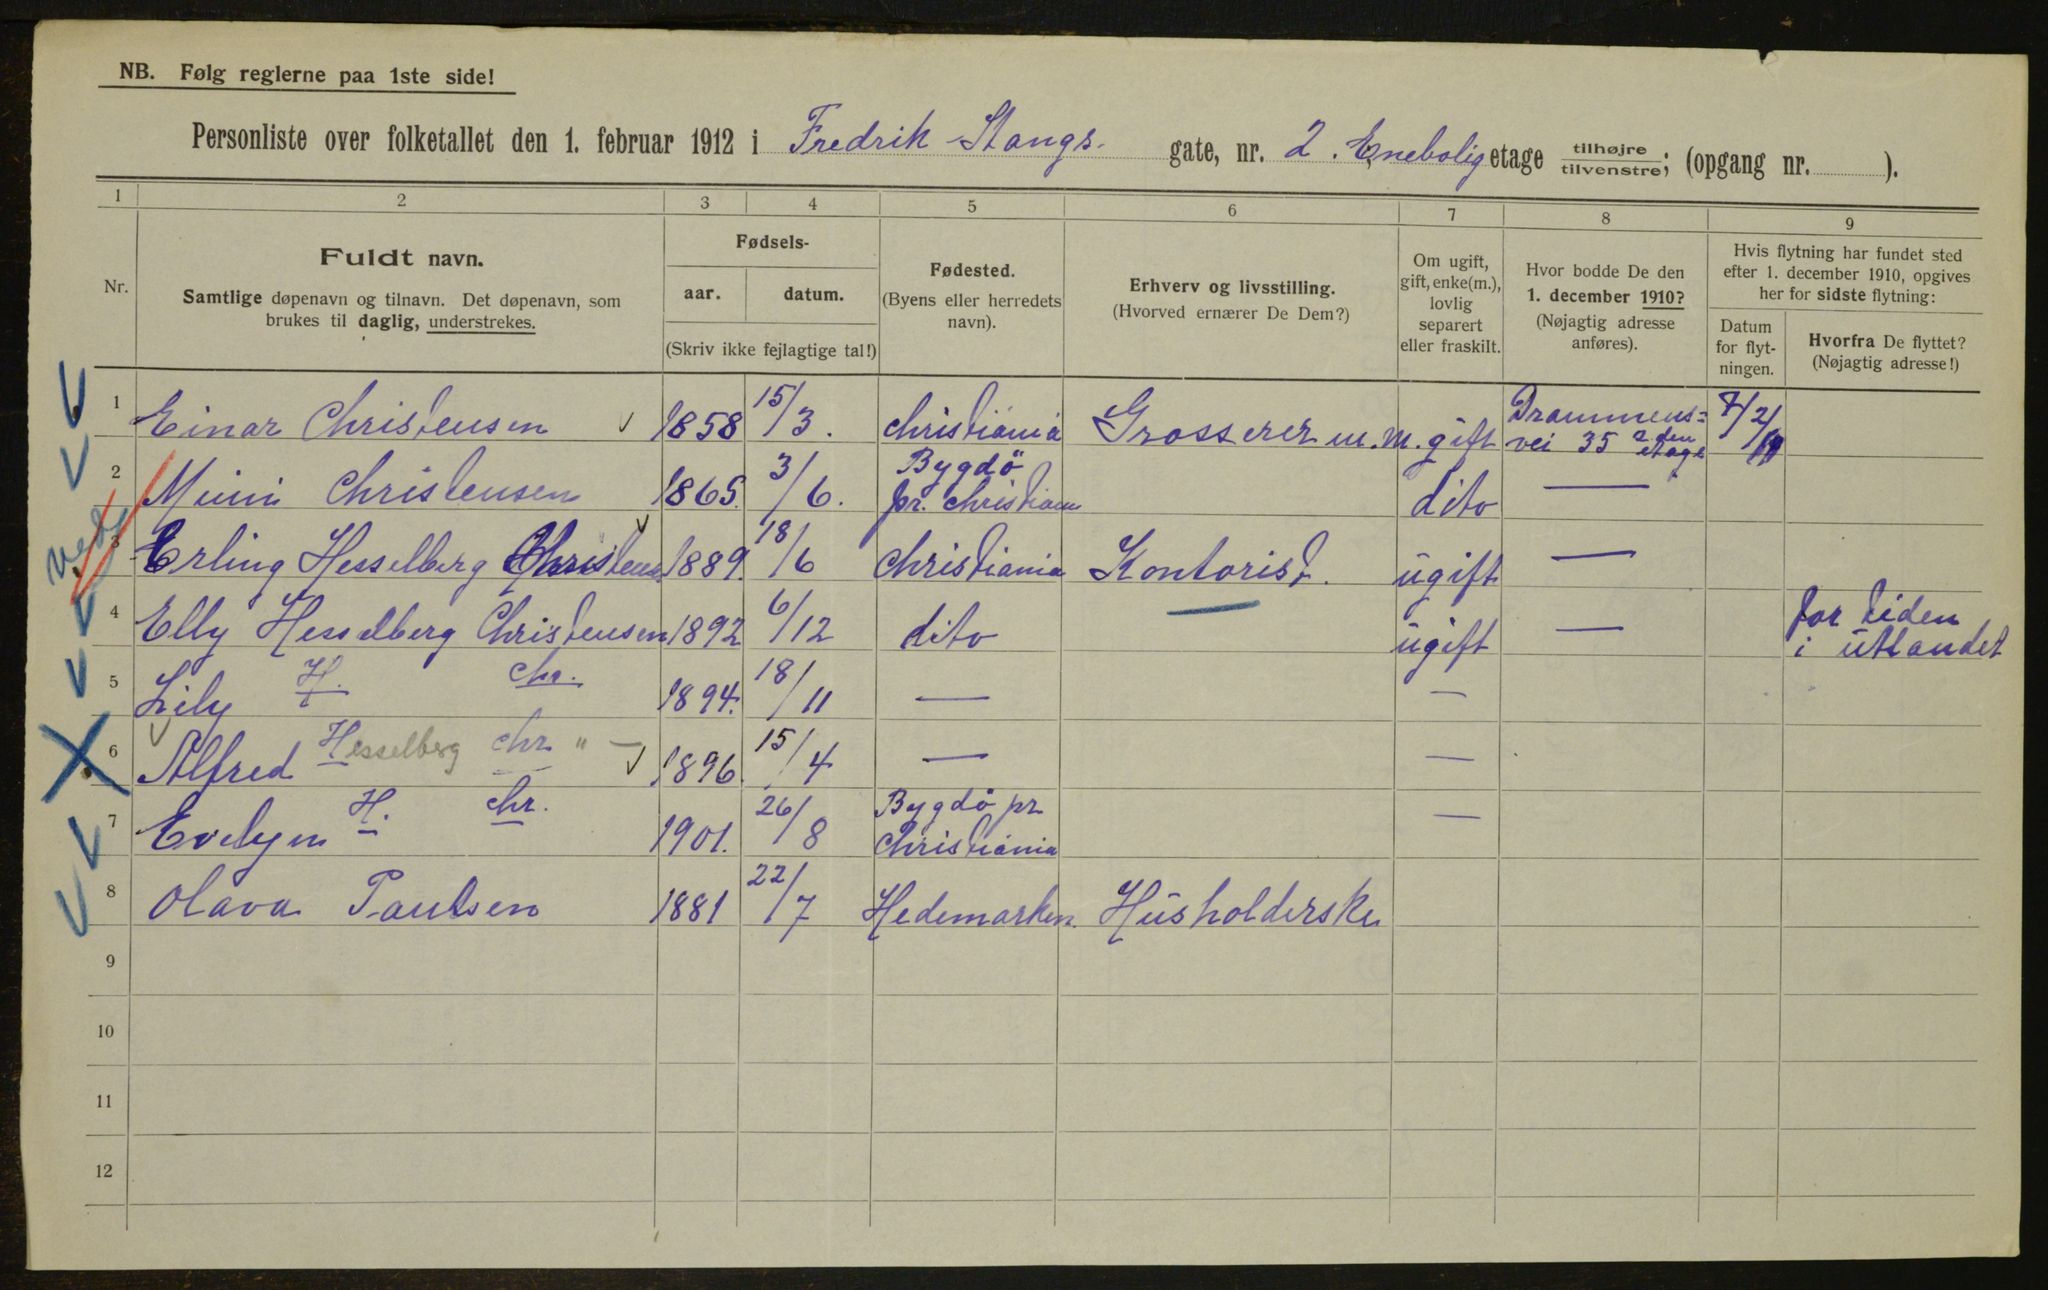 NB. Følg reglerne paa 1ste side!
Personliste over folketallet den 1. februar 1912 i Fredrik Stangs gate, nr. 2. Enebolig etage tilhøjre/tilvenstre; (opgang nr. ).
1 2 3 4 5 6 7 8 9
Nr.
Fuldt navn.
Samtlige døpenavn og tilnavn. Det døpenavn, som
brukes til daglig, understrekes.
Fødsels-
aar. datum.
(Skriv ikke fejlagtige tal!)
Fødested.
(Byens eller herredets
navn).
Erhverv og livsstilling.
(Hvorved ernærer De Dem?)
Om ugift,
gift, enke(m.),
lovlig
separert
eller fraskilt.
Hvor bodde De den
1. december 1910?
(Nøjagtig adresse
anføres).
Hvis flytning har fundet sted
efter 1. december 1910, opgives
her for sidste flytning:
Datum
for flyt-
ningen.
Hvorfra De flyttet?
(Nøjagtig adresse!)
1 Einar Christensen 1858 15/3. Christiania Grosserer m.m. gift Drammens= vei 35 2den etage 7/2/11
2 Mimi Christensen 1865. 3/6. Bygdö pr. Christiania dito —
3 Erling Hesselberg Christensen 1889. 18/6 Christiania Kontorist. ugift —
4 Elly Hesselberg Christensen 1892 6/12 dito ugift — for tiden i utlandet
5 Lily H. Chr. 1894. 18/11 — —
6 Alfred Hesselberg Chr " — 1896. 15/4 — —
7 Evelyn H. Chr. 1901. 26/8 Bygdö pr Christiania —
8 Olava Paulsen 1881 22/7 Hedemarken. Husholderske
9
10
11
12